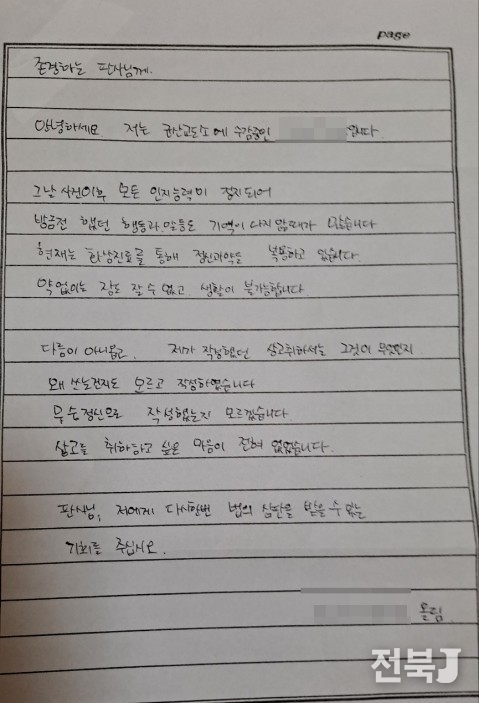 page
존경하는 판사님께.
안녕하세요 저는 군산교도소에 수감중인 입니다.
그날 사건이후 모든 인지능력이 정지되어
방금전 했던 행동과 말들도 기억이 나지 않을때가 많습니다
현재는 화상진료를 통해 정신과약을 복용하고 있습니다.
약 없이는 잠도 잘 수 없고 생활이 불가능합니다
다름이 아니옵고. 제가 작성했던 상고취하서는 그것이 무엇인지
왜 쓰는건지도 모르고 작성하였습니다
무슨정신으로 작성했는지 모르겠습니다.
상고를 취하하고 싶은 마음이 전혀 없었습니다.
판사님, 저에게 다시한번 법의 심판을 받을 수 있는
기회를 주십시오.
올림.
전북J